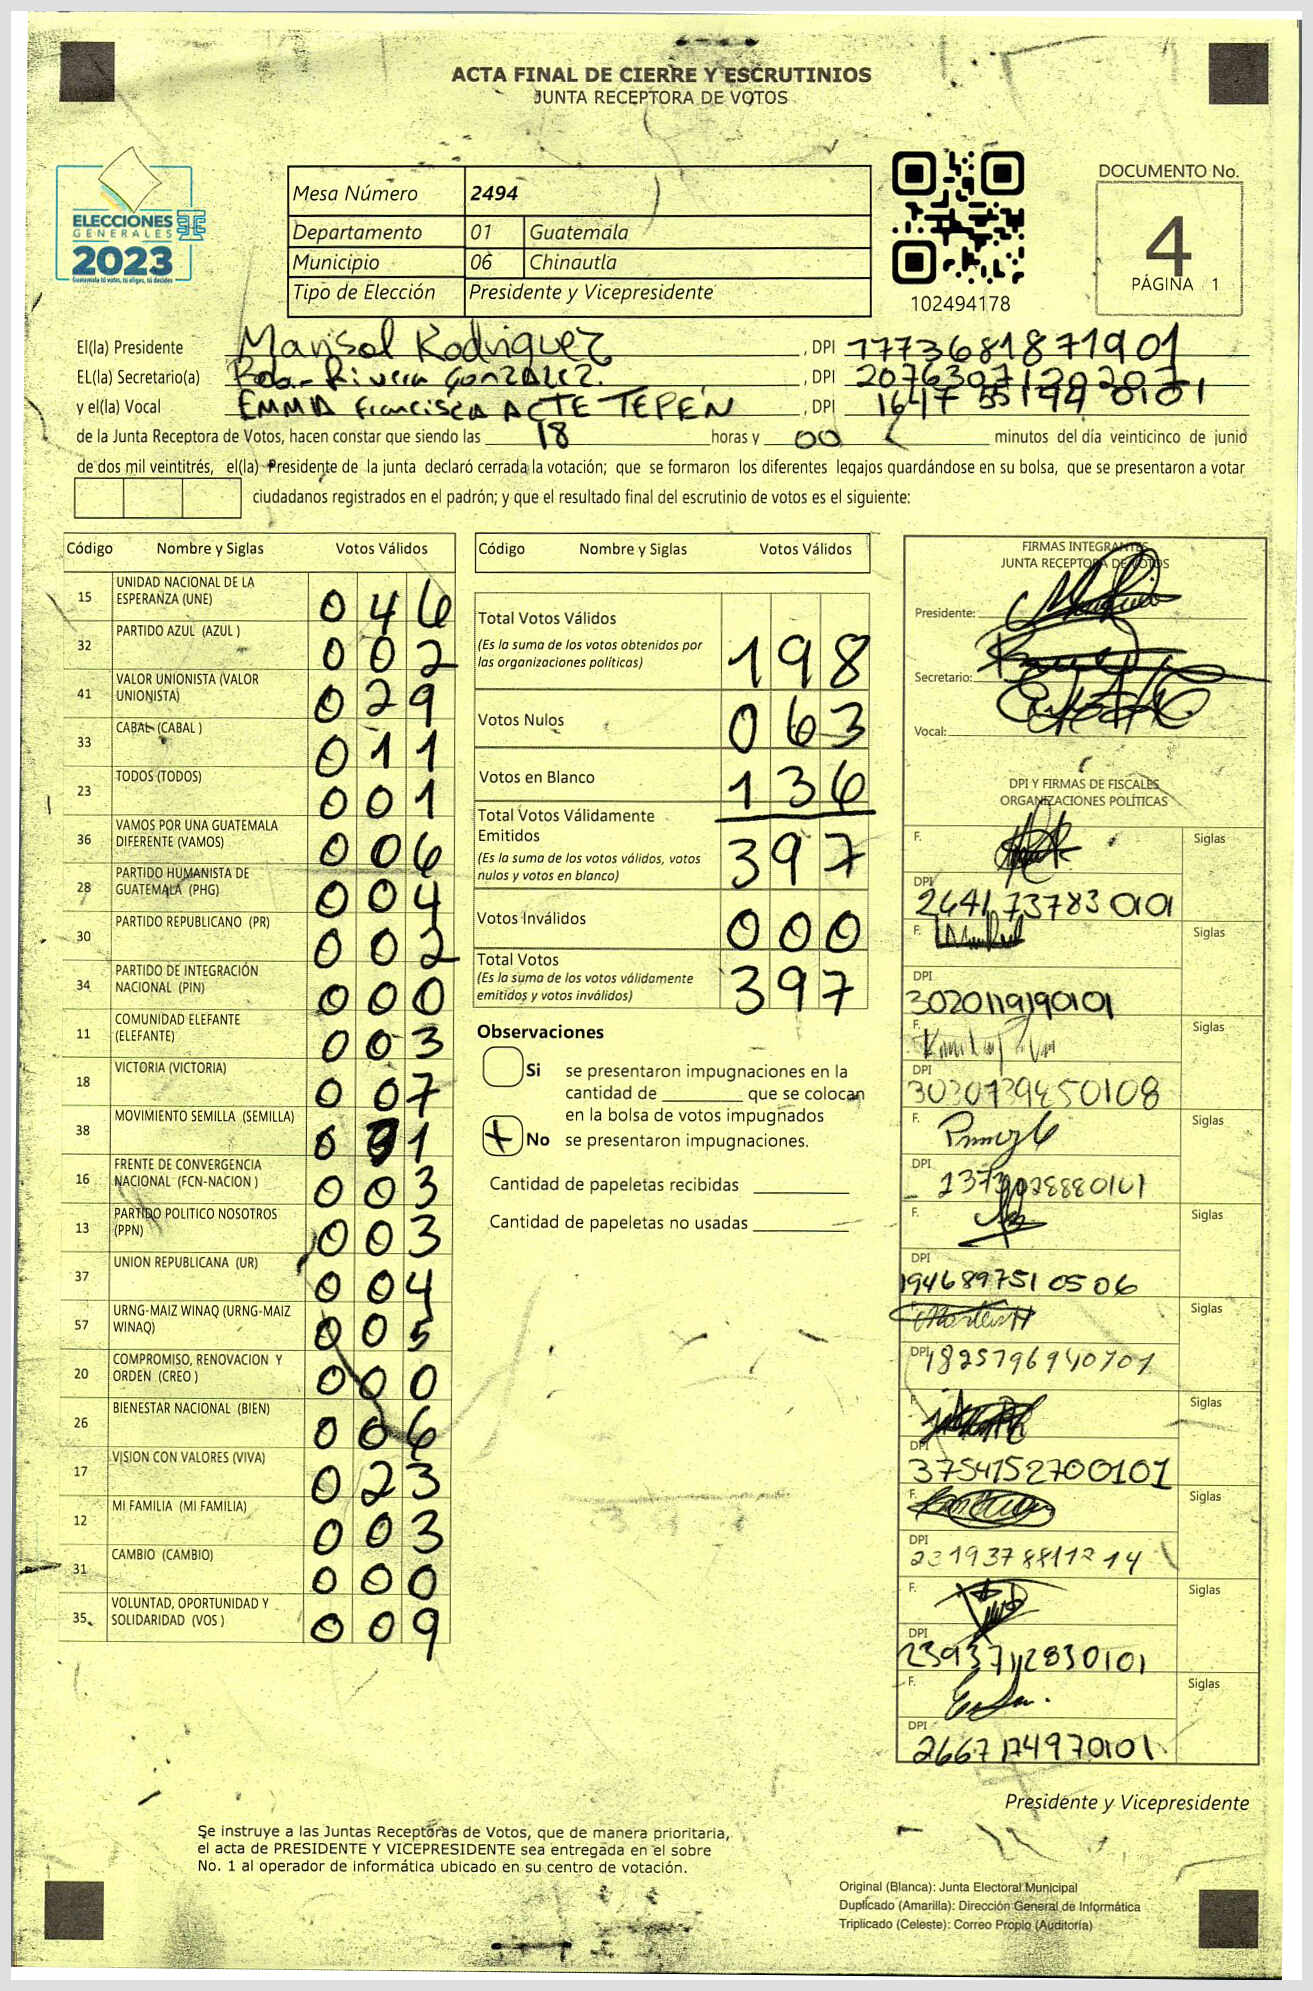 ACTA FINAL DE CIERRE Y ESCRUTINIOS
JUNTA RECEPTORA DE VOTOS
ELECCIONES
GENERALES
2023
Guatemala tú votas, tú eliges, tú decides
Mesa Número 2494
Departamento 01 Guatemala
Municipio 06 Chinautla
Tipo de Elección Presidente y Vicepresidente
102494178
DOCUMENTO No.
4
PÁGINA 1
El(la) Presidente Marisol Rodriguez, DPI 1773681871901
EL(la) Secretario(a) Rivera GONZALEZ., DPI
y el(la) Vocal EMMA Francisca ACTE TEPEN, DPI
de la Junta Receptora de Votos, hacen constar que siendo las 18 horas y 00 minutos del día veinticinco de junio
de dos mil veintitrés, el(la) Presidente de la junta declaró cerrada la votación; que se formaron los diferentes legajos guardándose en su bolsa, que se presentaron a votar
ciudadanos registrados en el padrón; y que el resultado final del escrutinio de votos es el siguiente:
Código Nombre y Siglas Votos Válidos
15 UNIDAD NACIONAL DE LA ESPERANZA (UNE) 046
32 PARTIDO AZUL (AZUL ) 002
41 VALOR UNIONISTA (VALOR UNIONISTA) 029
33 CABAL (CABAL ) 011
23 TODOS (TODOS) 001
36 VAMOS POR UNA GUATEMALA DIFERENTE (VAMOS) 006
28 PARTIDO HUMANISTA DE GUATEMALA (PHG) 004
30 PARTIDO REPUBLICANO (PR) 002
34 PARTIDO DE INTEGRACIÓN NACIONAL (PIN) 000
11 COMUNIDAD ELEFANTE (ELEFANTE) 003
18 VICTORIA (VICTORIA) 007
38 MOVIMIENTO SEMILLA (SEMILLA) 031
16 FRENTE DE CONVERGENCIA NACIONAL (FCN-NACION ) 003
13 PARTIDO POLITICO NOSOTROS (PPN) 003
37 UNION REPUBLICANA (UR) 004
57 URNG-MAIZ WINAQ (URNG-MAIZ WINAQ) 005
20 COMPROMISO, RENOVACION Y ORDEN (CREO ) 000
26 BIENESTAR NACIONAL (BIEN) 006
17 VISION CON VALORES (VIVA) 023
12 MI FAMILIA (MI FAMILIA) 003
31 CAMBIO (CAMBIO) 000
35 VOLUNTAD, OPORTUNIDAD Y SOLIDARIDAD (VOS ) 009
Código Nombre y Siglas Votos Válidos
Total Votos Válidos 198
(Es la suma de los votos obtenidos por
las organizaciones políticas)
Votos Nulos 063
Votos en Blanco 136
Total Votos Válidamente
Emitidos 397
(Es la suma de los votos válidos, votos
nulos y votos en blanco)
Votos Inválidos 000
Total Votos 397
(Es la suma de los votos válidamente
emitidos y votos inválidos)
Observaciones
Si se presentaron impugnaciones en la
cantidad de que se colocan
en la bolsa de votos impugnados
No se presentaron impugnaciones.
Cantidad de papeletas recibidas
Cantidad de papeletas no usadas
FIRMAS INTEGRANTES
JUNTA RECEPTORA DE VOTOS
Presidente:
Secretario:
Vocal:
DPI Y FIRMAS DE FISCALES
ORGANIZACIONES POLÍTICAS
F. Siglas
DPI
2641737830101
F. Siglas
DPI
3020119190101
F. Siglas
DPI
3030739450108
F. Siglas
DPI
F. Siglas
DPI
1946897510506
F. Siglas
DPI 1825796940701
F. Siglas
DPI
3754152700101
F. Siglas
DPI
F. Siglas
DPI
2393712830101
F. Siglas
DPI
2667174970101
Presidente y Vicepresidente
Se instruye a las Juntas Receptoras de Votos, que de manera prioritaria,
el acta de PRESIDENTE Y VICEPRESIDENTE sea entregada en el sobre
No. 1 al operador de informática ubicado en su centro de votación.
Original (Blanca): Junta Electoral Municipal
Duplicado (Amarilla): Dirección General de Informática
Triplicado (Celeste): Correo Propio (Auditoría)